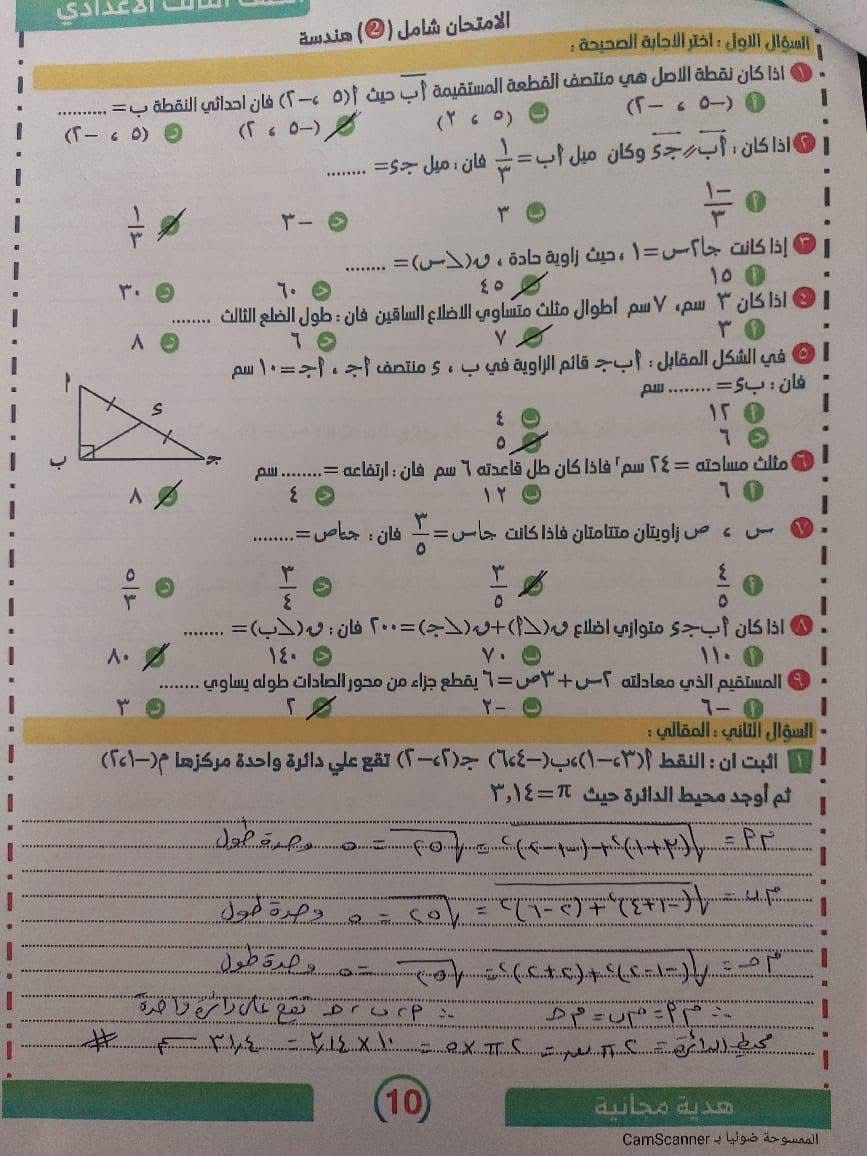 الثالث الاعدادي
الامتحان شامل (2) هندسة
السؤال الاول : اختر الاجابة الصحيحة :
١ اذا كان نقطة الاصل هي منتصف القطعة المستقيمة أب حيث أ(٥ ، -٢) فان احداثي النقطة ب= ..........
أ (-٥ ، -٢) ب (٥ ، ٢) ج (-٥ ، ٢) د (٥ ، -٢)
٢ اذا كان : أب // جـد وكان ميل أب = ١/٣ فان : ميل جـد= ........
أ -١/٣ ب ٣ ج -٣ د ١/٣
٣ إذا كانت جا٢س=١ ، حيث زاوية حادة ، ق(∠س)= ........
أ ١٥ ب ٤٥ ج ٦٠ د ٣٠
٤ اذا كان ٣ سم، ٧ سم أطوال مثلث متساوي الاضلاع الساقين فان : طول الضلع الثالث ........
أ ٣ ب ٧ ج ٦ د ٨
٥ في الشكل المقابل : أب جـ قائم الزاوية في ب ، د منتصف أجـ ، أجـ=١٠ سم
فان : ب د= ........ سم
أ ١٢ ب ٤
ج ٦ د ٥
أ
د
ب
جـ
٦ مثلث مساحته = ٢٤ سم٢ فاذا كان طل قاعدته ٦ سم فان : ارتفاعه = ........ سم
أ ٦ ب ١٢ ج ٤ د ٨
٧ س ، ص زاويتان متتامتان فاذا كانت جاس= ٣/٥ فان : جتاص= ........
أ ٤/٥ ب ٣/٥ ج ٣/٤ د ٥/٣
٨ اذا كان أب جـ د متوازي اضلاع ق(∠أ)+ق(∠جـ)=٢٠٠ فان : ق(∠ب)= ........
أ ١١٠ ب ٧٠ ج ١٤٠ د ٨٠
٩ المستقيم الذي معادلته ٢س+٣ص=٦ يقطع جزاء من محور الصادات طوله يساوي ........
أ -٦ ب -٢ ج ٢ د ٣
السؤال الثاني : المقالي :
١ اثبت ان : النقط أ(٣،-١)،ب(-٤،٦) جـ(٢،-٢) تقع علي دائرة واحدة مركزها م(-١،٢)
ثم أوجد محيط الدائرة حيث π=٣,١٤
م أ = √(٣+١)²+(-١-٢)² = √٢٥ = ٥ وحدة طول
م ب = √(-١+٤)²+(٢-٦)² = √٢٥ = ٥ وحدة طول
م جـ = √(-١-٢)²+(٢+٢)² = √٢٥ = ٥ وحدة طول
∴ م أ = م ب = م جـ ∴ أ ، ب ، جـ تقع على دائرة واحدة
محيط الدائرة = ٢ π نق = ٢ π × ٥ = ١٠ × ٣,١٤ = ٣١,٤ #
هدية مجانية
10
الممسوحة ضوئيا بـ CamScanner